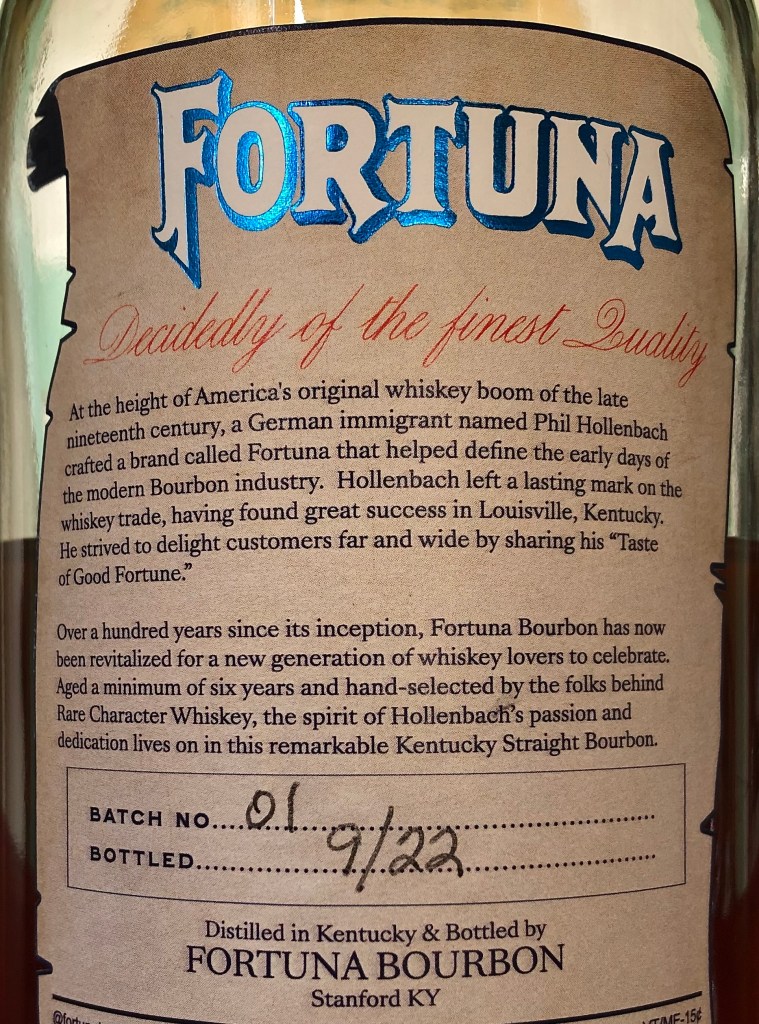 FORTUNA
Decidedly of the finest Quality
At the height of America's original whiskey boom of the late
nineteenth century, a German immigrant named Phil Hollenbach
crafted a brand called Fortuna that helped define the early days of
the modern Bourbon industry. Hollenbach left a lasting mark on the
whiskey trade, having found great success in Louisville, Kentucky.
He strived to delight customers far and wide by sharing his “Taste
of Good Fortune.”
Over a hundred years since its inception, Fortuna Bourbon has now
been revitalized for a new generation of whiskey lovers to celebrate.
Aged a minimum of six years and hand-selected by the folks behind
Rare Character Whiskey, the spirit of Hollenbach’s passion and
dedication lives on in this remarkable Kentucky Straight Bourbon.
BATCH NO....01
BOTTLED....9/22
Distilled in Kentucky & Bottled by
FORTUNA BOURBON
Stanford KY